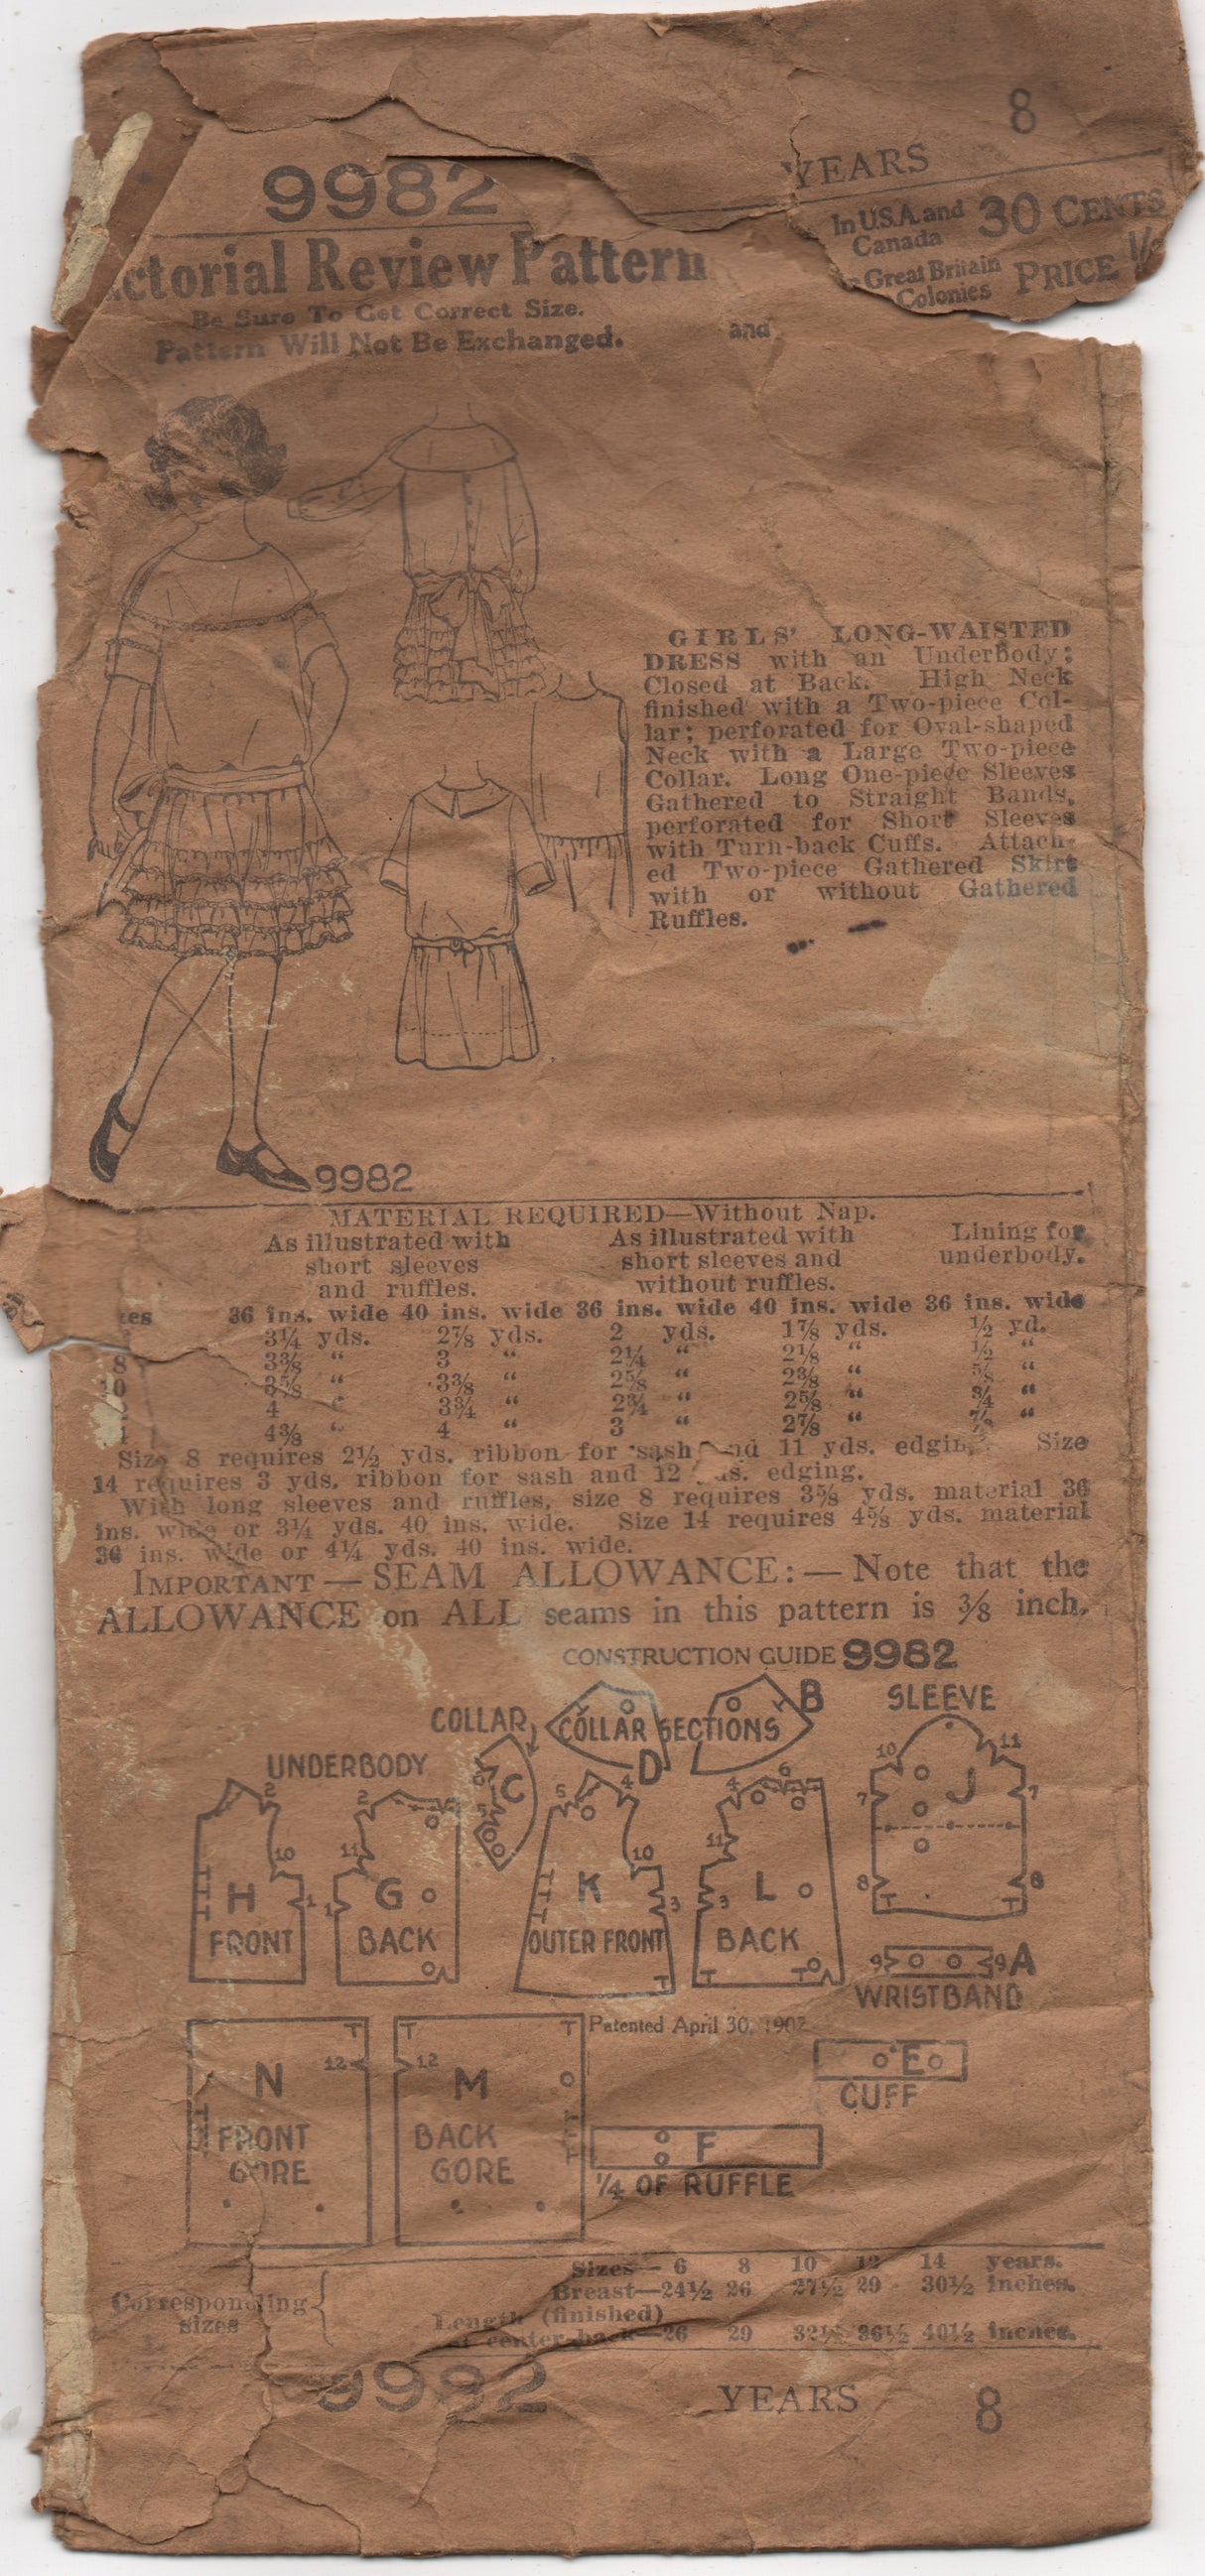 8
9982 YEARS
In U.S.A. and Canada 30 CENTS
Great Britain Colonies PRICE 1/
ctorial Review Pattern
Be Sure To Get Correct Size.
Pattern Will Not Be Exchanged. and
GIRLS' LONG-WAISTED
DRESS with an Underbody;
Closed at Back. High Neck
finished with a Two-piece Col-
lar; perforated for Oval-shaped
Neck with a Large Two-piece
Collar. Long One-piece Sleeves
Gathered to Straight Bands,
perforated for Short Sleeves
with Turn-back Cuffs. Attach-
ed Two-piece Gathered Skirt
with or without Gathered
Ruffles.
9982
MATERIAL REQUIRED—Without Nap.
As illustrated with As illustrated with Lining for
short sleeves short sleeves and underbody.
and ruffles. without ruffles.
zes 36 ins. wide 40 ins. wide 36 ins. wide 40 ins. wide 36 ins. wide
3¼ yds. 2⅞ yds. 2 yds. 1⅞ yds. ½ yd.
8 3⅜ " 3 " 2¼ " 2⅛ " ½ "
10 3⅝ " 3⅜ " 2⅝ " 2⅜ " ⅝ "
4 " 3¾ " 2¾ " 2⅝ " ¾ "
4⅜ " 4 " 3 " 2⅞ " ⅞ "
Size 8 requires 2½ yds. ribbon for sash nd 11 yds. edgin Size
14 requires 3 yds. ribbon for sash and 12 ds. edging.
With long sleeves and ruffles, size 8 requires 3⅝ yds. material 36
ins. wide or 3¼ yds. 40 ins. wide. Size 14 requires 4⅝ yds. material
36 ins. wide or 4¼ yds. 40 ins. wide.
IMPORTANT — SEAM ALLOWANCE: — Note that the
ALLOWANCE on ALL seams in this pattern is ⅜ inch.
CONSTRUCTION GUIDE 9982
COLLAR C
COLLAR SECTIONS B D
SLEEVE
10 11
J
7 7
8 8
UNDERBODY
2
10
H 1
FRONT
2
11
G
1
BACK
6
5
5 4
10
K
3
OUTER FRONT
4 6
11
L
3
BACK
9 9 A
WRISTBAND
Patented April 30, 1907
12
N
FRONT
GORE
12
M
BACK
GORE
E
CUFF
F
¼ OF RUFFLE
Corresponding sizes
Sizes— 6 8 10 12 14 years.
Breast—24½ 26 27½ 29 30½ inches.
Length (finished)
at center-back—26 29 32½ 36½ 40½ inches.
9982 YEARS 8